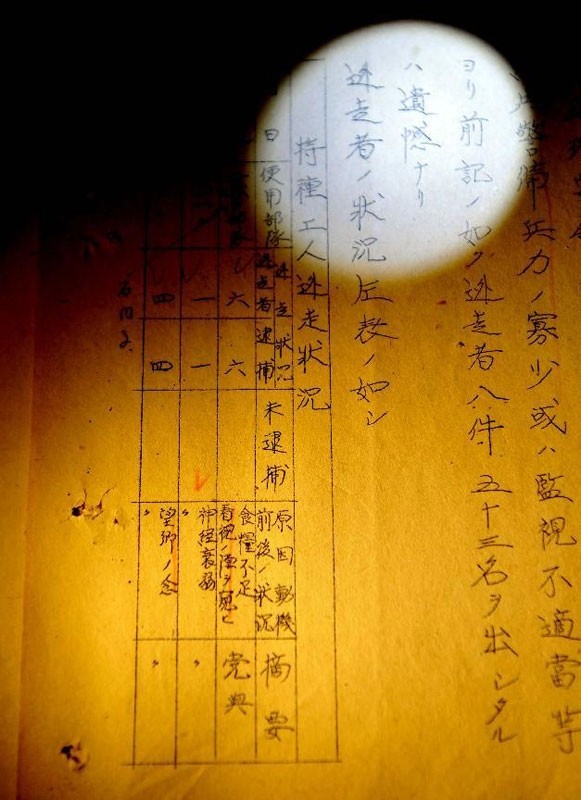 警備兵力ノ寡少或ハ監視不適當等
ヨリ前記ノ如ク逃走者八件五十三名ヲ出シタル
ハ遺憾ナリ
逃走者ノ状況左表ノ如シ
特種工人逃走状況
日
使用部隊
逃走状況
逃走者
逮捕
未逮捕
原因動機
前後ノ状況
摘要
六
六
食糧不足
看視ノ隙ヲ窺ヒ
党與
一
一
〃
神経衰弱
〃
四
四
〃
望郷ノ念
〃